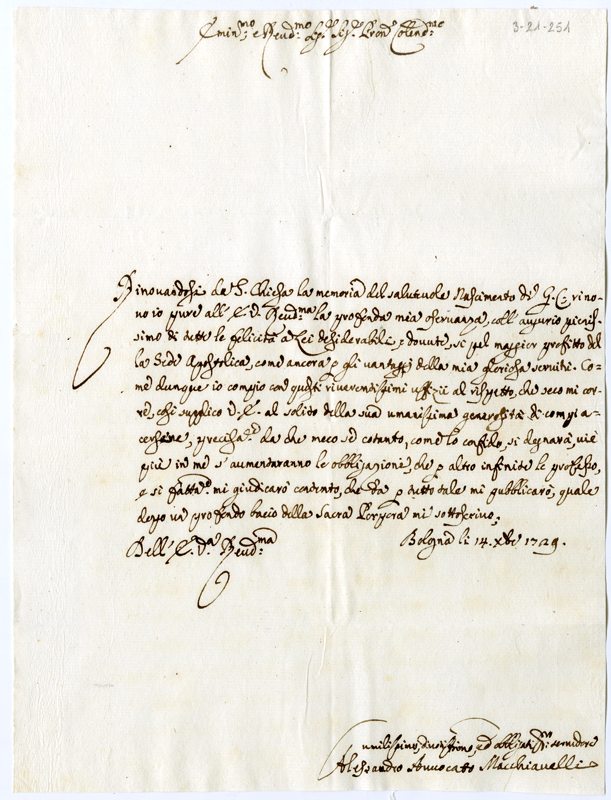 3-21-251
Emin.mo e Reud.mo Sig.r Sig.r Pron.e Colend.mo
Rinouandosi da S. Chiesa la memoria del saluteuole Nascimento di G. C. rino-
uo io pure all' E. V. Reud.ma la profonda mia osseruanza, coll' augurio pienis-
simo di tutte le felicità a Lei desiderabili, e douute, sì pel maggior profitto del
la Sede Apostolica, come ancora p gli vantaggi della mia gloriosa seruitù. Co-
me dunque io compio con questi riuerentissimi uffizii al rispetto, che seco mi cor-
re, così supplico V. E. al solito della sua umanissima generosità di compia-
cersene, precisam.e da che meco se cotanto, come lo confido, si degnarà, uie
più in me s' aumentaranno le obbligazioni, che p altro infinite le professo,
e sì fattam.e mi giudicarò contento, che da p tutto tale mi pubblicarò, quale
dopo un profondo bacio della Sacra Porpora mi sottoscriuo.
Dell' E. V.a Reud.ma Bologna li 14. Xbre 1729.
umilissimo, diuotissimo, ed obbligatis.mo seruidore
Alessandro Auuocato Macchiauelli